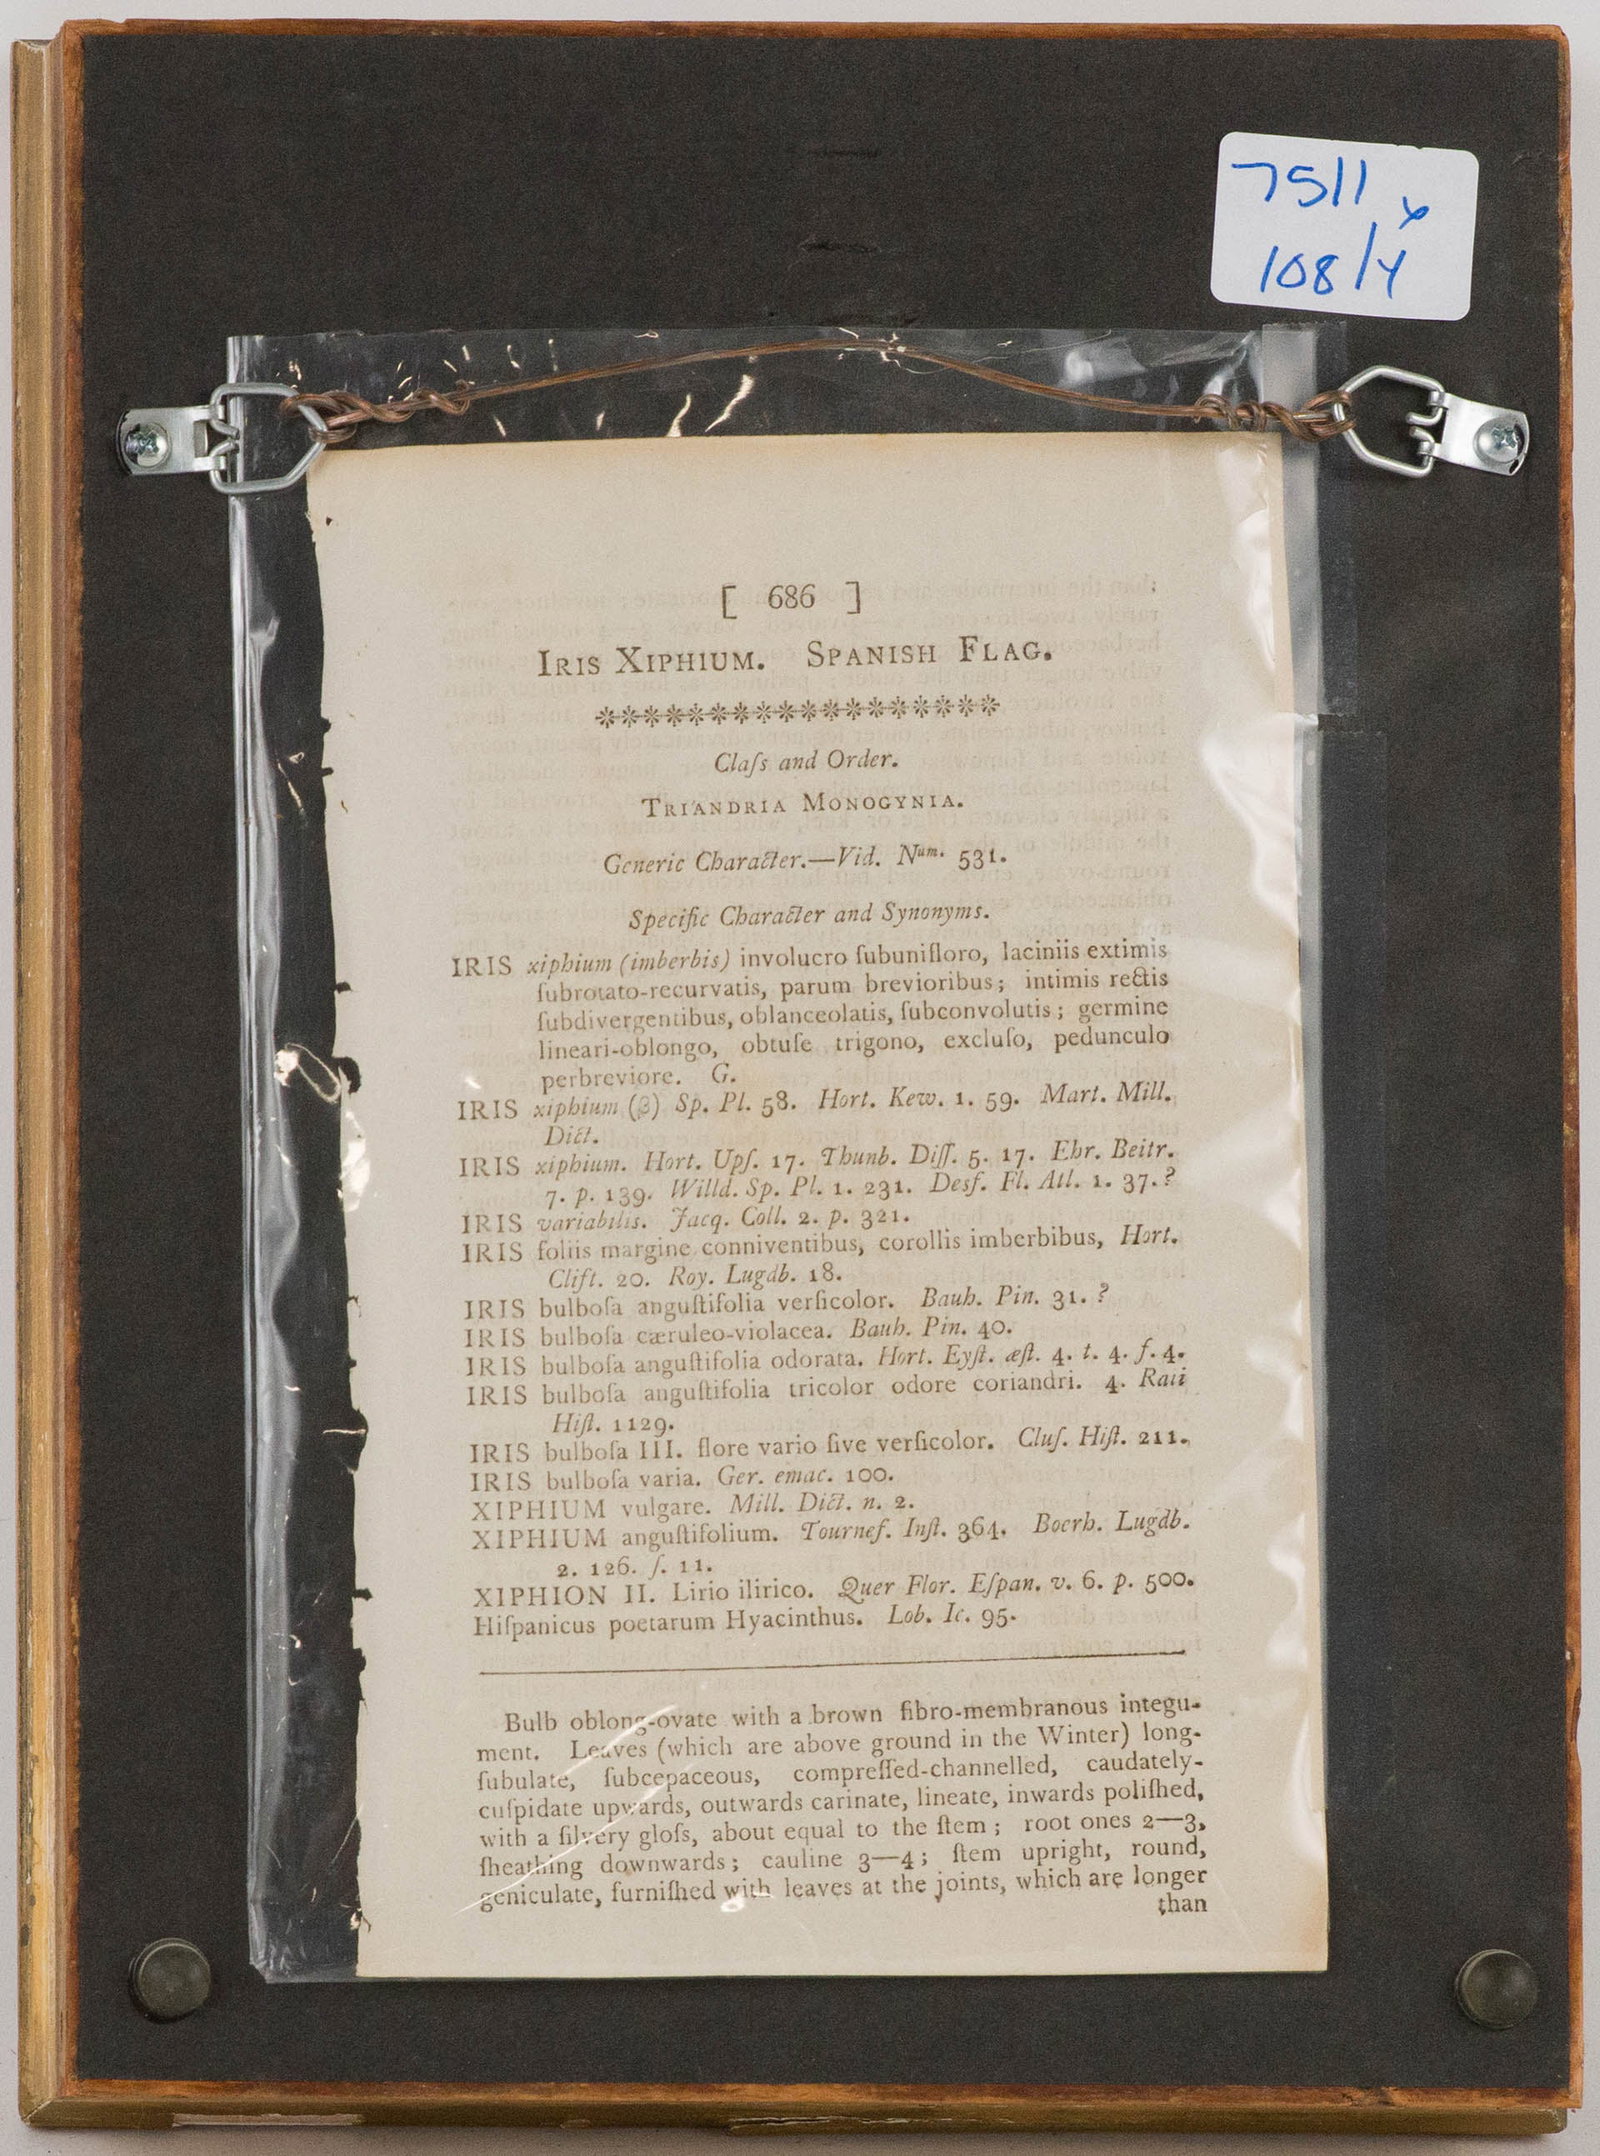 7511
108/4
[ 686 ]
IRIS XIPHIUM. SPANISH FLAG.
Claſs and Order.
TRIANDRIA MONOGYNIA.
Generic Character.—Vid. Num. 531.
Specific Character and Synonyms.
IRIS xiphium (imberbis) involucro ſubunifloro, laciniis extimis
ſubrotato-recurvatis, parum brevioribus; intimis rectis
ſubdivergentibus, oblanceolatis, ſubconvolutis; germine
lineari-oblongo, obtuſe trigono, excluſo, pedunculo
perbreviore. G.
IRIS xiphium (β) Sp. Pl. 58. Hort. Kew. 1. 59. Mart. Mill.
Dict.
IRIS xiphium. Hort. Upſ. 17. Thunb. Diſſ. 5. 17. Ehr. Beitr.
7. p. 139. Willd. Sp. Pl. 1. 231. Desf. Fl. Atl. 1. 37.?
IRIS variabilis. Jacq. Coll. 2. p. 321.
IRIS foliis margine conniventibus, corollis imberbibus, Hort.
Clift. 20. Roy. Lugdb. 18.
IRIS bulboſa anguſtifolia verſicolor. Bauh. Pin. 31. ?
IRIS bulboſa cæruleo-violacea. Bauh. Pin. 40.
IRIS bulboſa anguſtifolia odorata. Hort. Eyſt. æſt. 4. t. 4. f. 4.
IRIS bulboſa anguſtifolia tricolor odore coriandri. 4. Raii
Hiſt. 1129.
IRIS bulboſa III. flore vario ſive verſicolor. Cluſ. Hiſt. 211.
IRIS bulboſa varia. Ger. emac. 100.
XIPHIUM vulgare. Mill. Dict. n. 2.
XIPHIUM anguſtifolium. Tournef. Inſt. 364. Boerh. Lugdb.
2. 126. ſ. 11.
XIPHION II. Lirio ilirico. Quer Flor. Eſpan. v. 6. p. 500.
Hiſpanicus poetarum Hyacinthus. Lob. Ic. 95.
Bulb oblong-ovate with a brown fibro-membranous integu-
ment. Leaves (which are above ground in the Winter) long-
ſubulate, ſubcepaceous, compreſſed-channelled, caudately-
cuſpidate upwards, outwards carinate, lineate, inwards poliſhed,
with a ſilvery gloſs, about equal to the ſtem; root ones 2—3,
ſheathing downwards; cauline 3—4; ſtem upright, round,
geniculate, furniſhed with leaves at the joints, which are longer
than